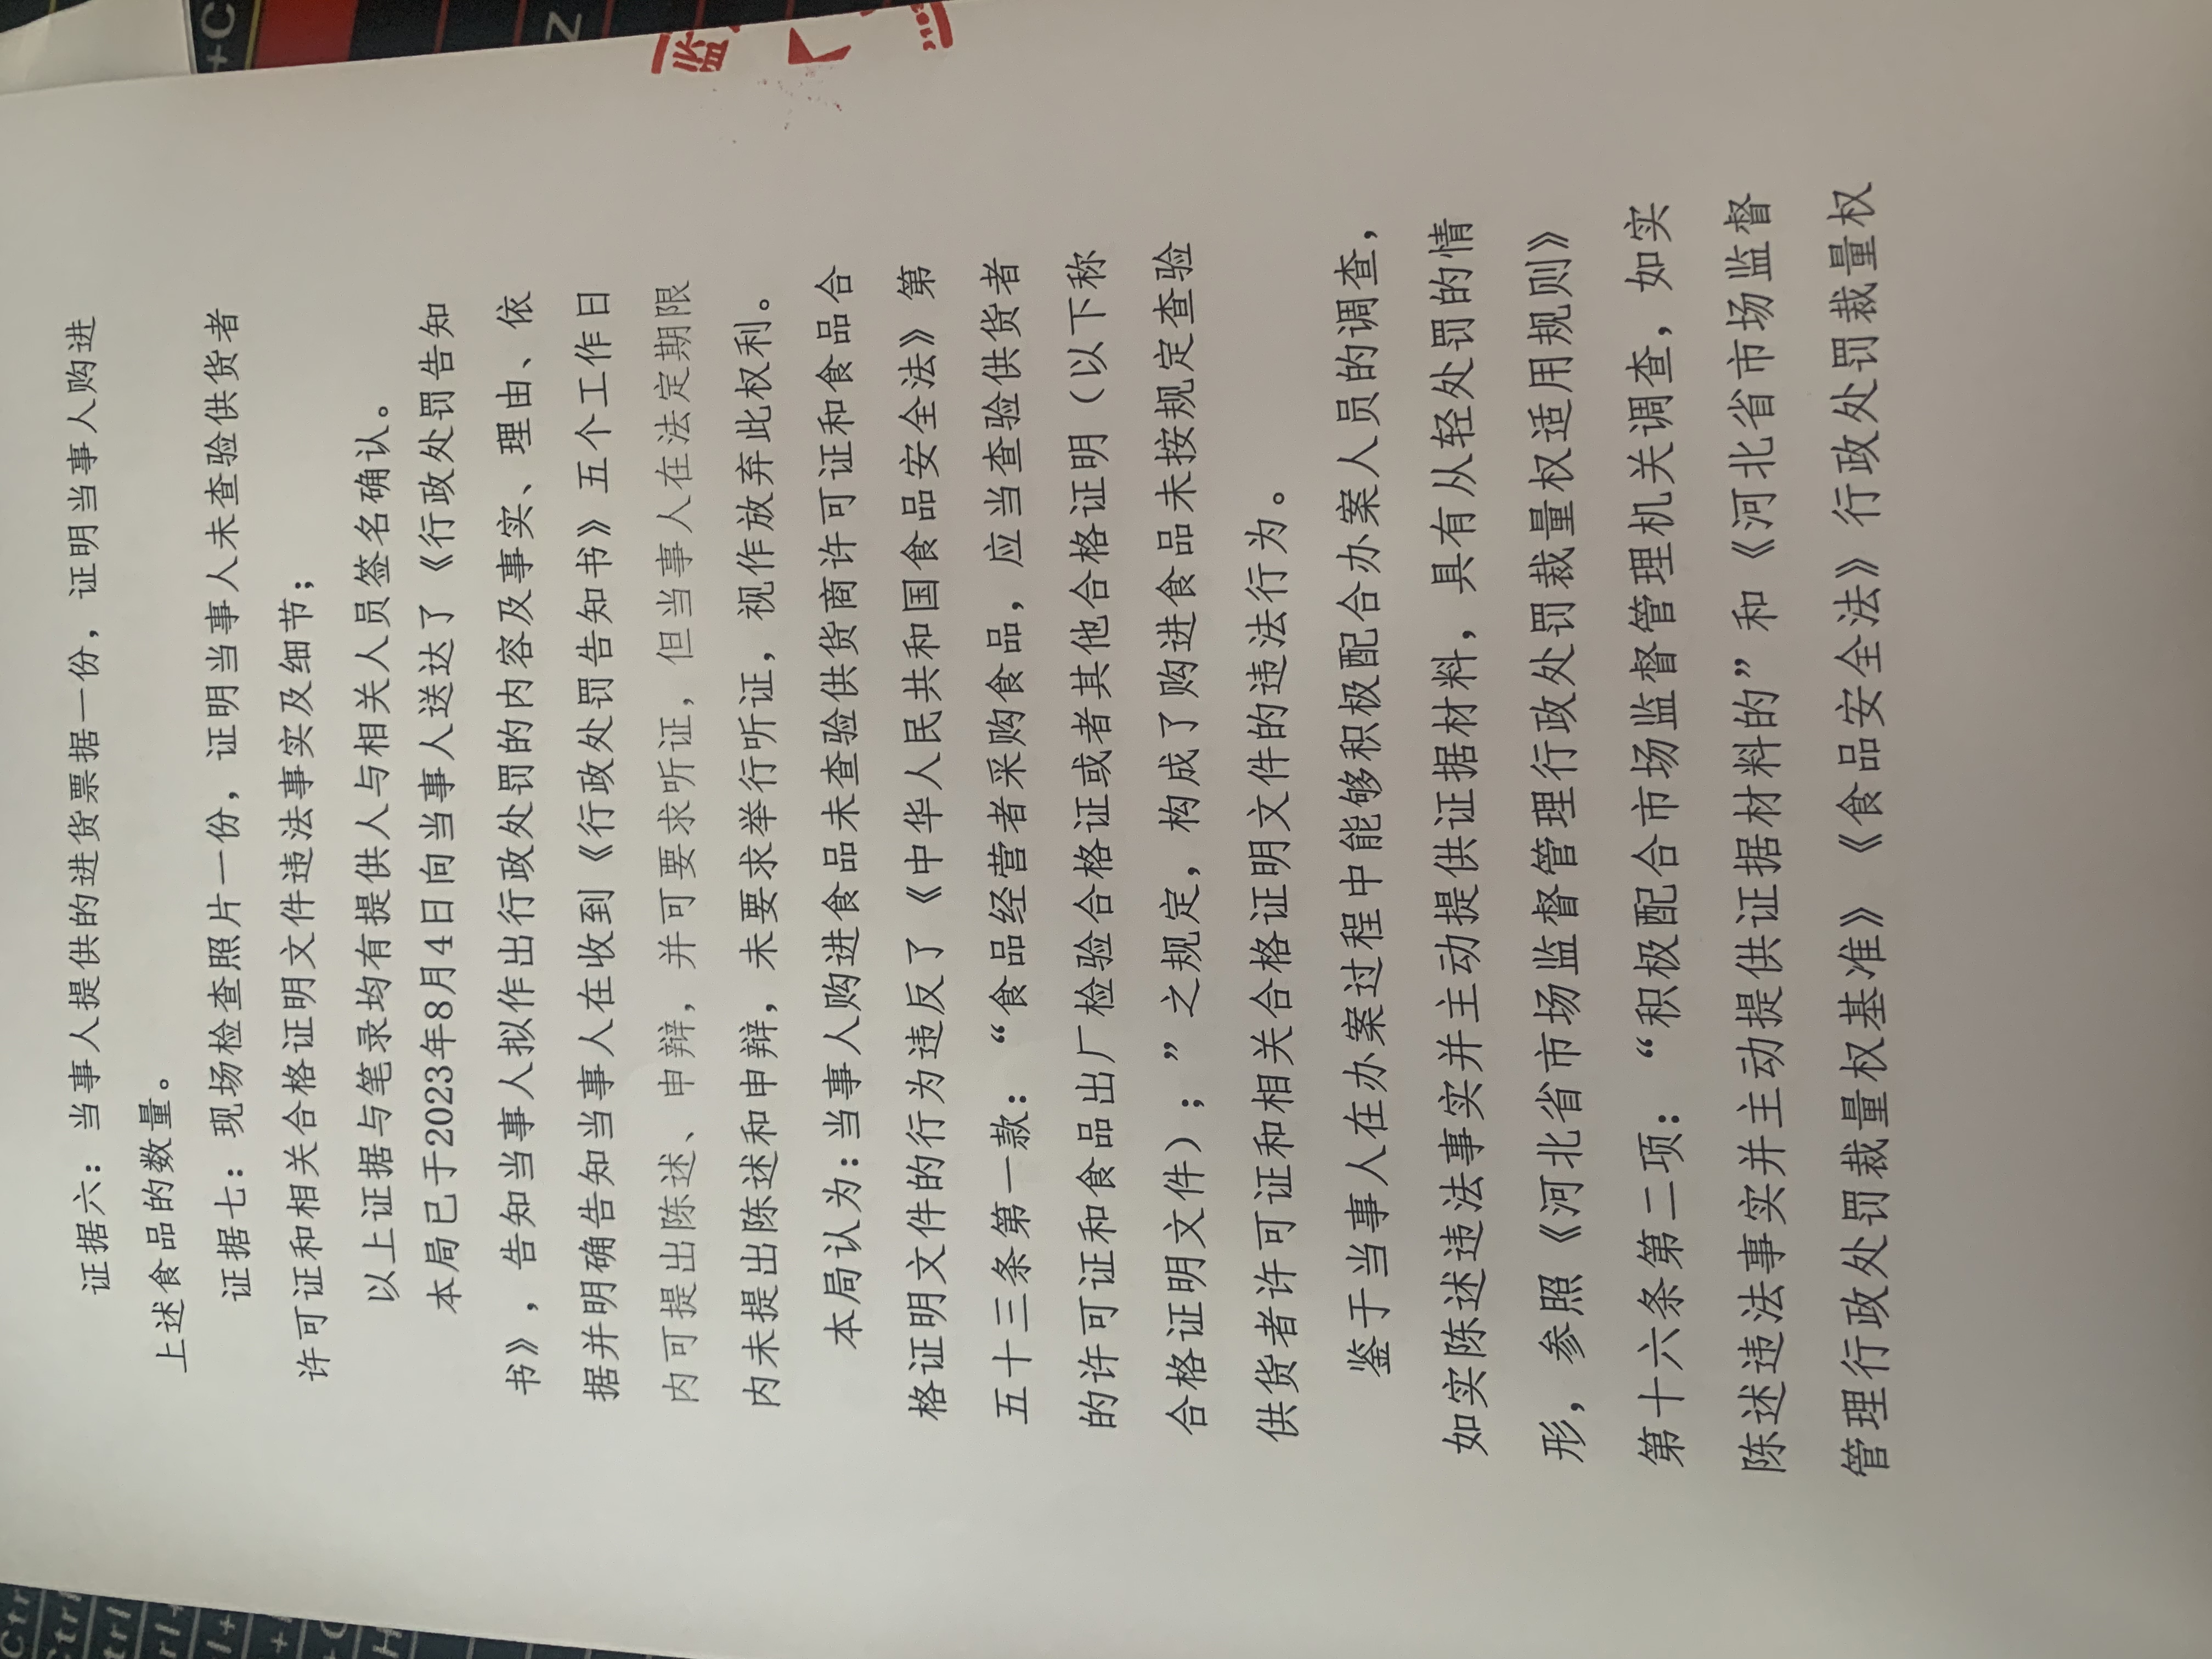 证据六：当事人提供的进货票据一份，证明当事人购进
上述食品的数量。
证据七：现场检查照片一份，证明当事人未查验供货者
许可证和相关合格证明文件违法事实及细节；
以上证据与笔录均有提供人与相关人员签名确认。
本局已于2023年8月4日向当事人送达了《行政处罚告知
书》，告知当事人拟作出行政处罚的内容及事实、理由、依
据并明确告知当事人在收到《行政处罚告知书》五个工作日
内可提出陈述、申辩，并可要求听证，但当事人在法定期限
内未提出陈述和申辩，未要求举行听证，视作放弃此权利。
本局认为：当事人购进食品未查验供货商许可证和食品合
格证明文件的行为违反了《中华人民共和国食品安全法》第
五十三条第一款：“食品经营者采购食品，应当查验供货者
的许可证和食品出厂检验合格证或者其他合格证明（以下称
合格证明文件）；”之规定，构成了购进食品未按规定查验
供货者许可证和相关合格证明文件的违法行为。
鉴于当事人在办案过程中能够积极配合办案人员的调查，
如实陈述违法事实并主动提供证据材料，具有从轻处罚的情
形，参照《河北省市场监督管理行政处罚裁量权适用规则》
第十六条第二项：“积极配合市场监督管理机关调查，如实
陈述违法事实并主动提供证据材料的”和《河北省市场监督
管理行政处罚裁量权基准》《食品安全法》行政处罚裁量权
监
+C
Z
Ctr
Ctrl
trl
rl+
l+
+
H